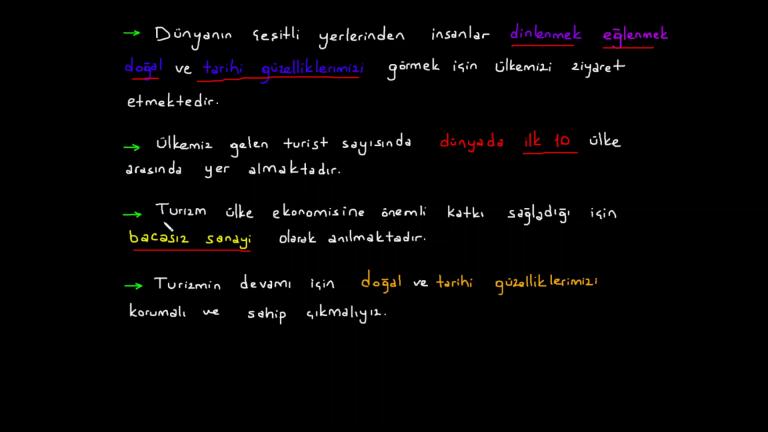 → Dünyanın çeşitli yerlerinden insanlar dinlenmek eğlenmek
doğal ve tarihi güzelliklerimizi görmek için ülkemizi ziyaret
etmektedir.
→ Ülkemiz gelen turist sayısında dünyada ilk 10 ülke
arasında yer almaktadır.
→ Turizm ülke ekonomisine önemli katkı sağladığı için
bacasız sanayi olarak anılmaktadır.
→ Turizmin devamı için doğal ve tarihi güzelliklerimizi
korumalı ve sahip çıkmalıyız.